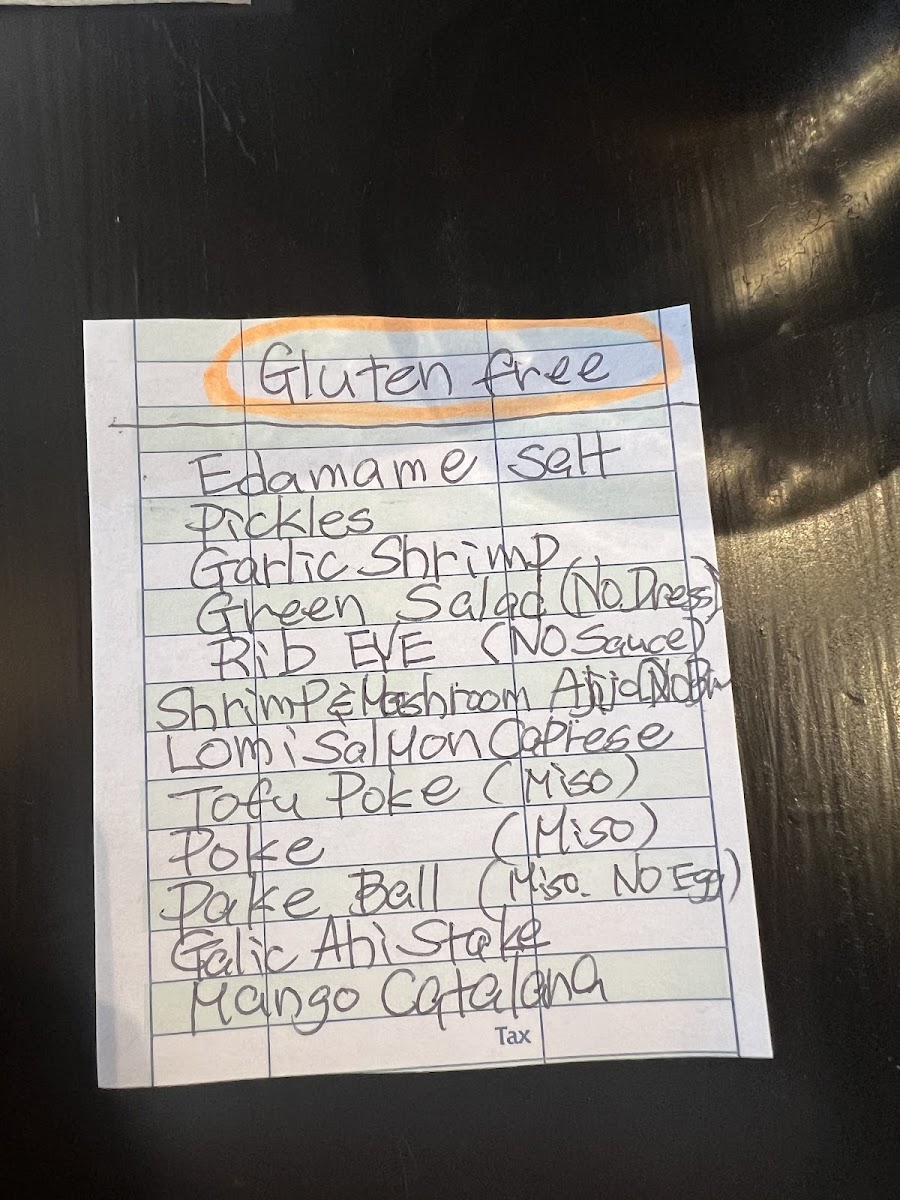 Gluten free
Edamame Salt
Pickles
Garlic Shrimp
Green Salad (No.Dress)
Rib EYE (NO Sauce)
Shrimp & Moshroom (No
Lomi Salmon Caprese
Tofu Poke (Miso)
Poke (Miso)
Pake Ball (Miso. NO Egg)
Galic Ahi Stake
Mango Catalana
Tax